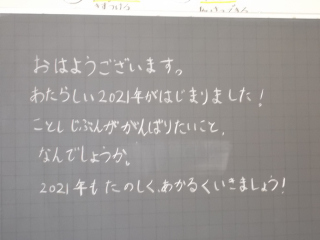 おはようございます。
あたらしい2021年がはじまりました!
ことしじぶんががんばりたいこと、
なんでしょうか。
2021年もたのしく、あかるくいきましょう!